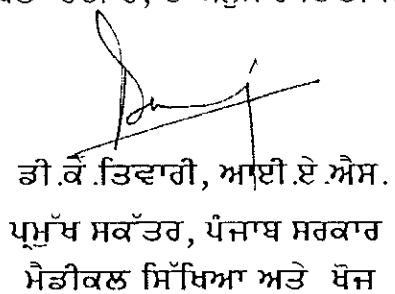 ਡੀ.ਕੇ.ਤਿਵਾਰੀ, ਆਈ.ਏ.ਐਸ.
ਪ੍ਰਮੁੱਖ ਸਕੱਤਰ, ਪੰਜਾਬ ਸਰਕਾਰ
ਮੈਡੀਕਲ ਸਿੱਖਿਆ ਅਤੇ ਖੋਜ